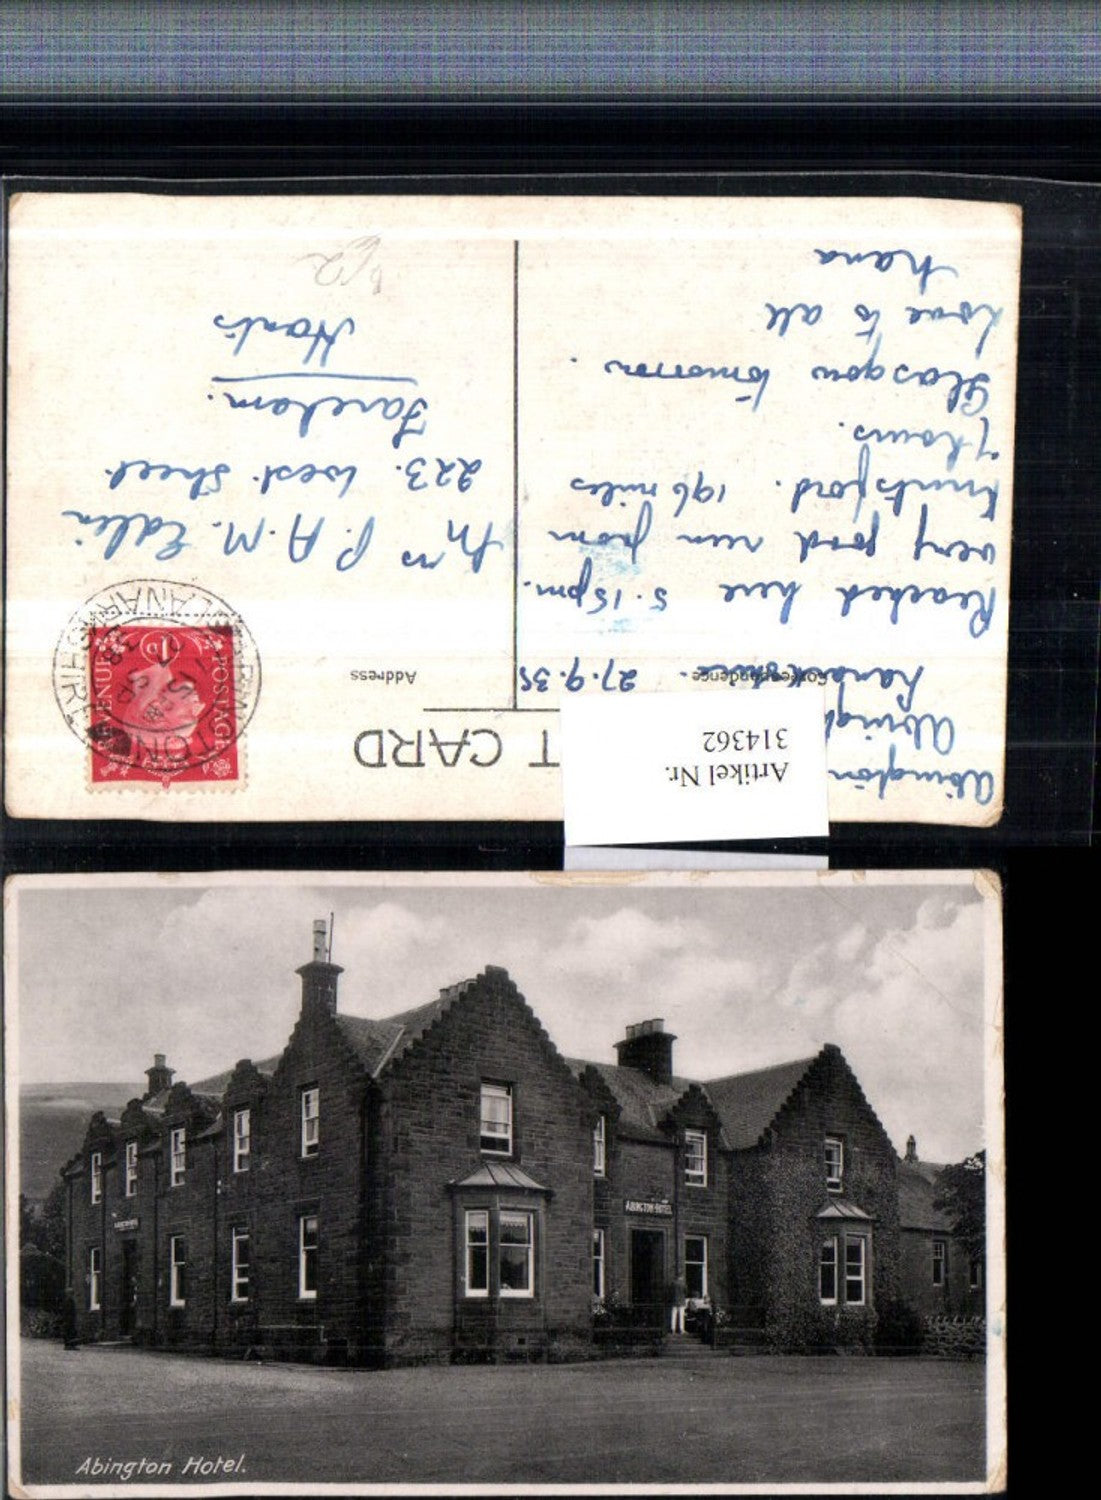 POST CARD
Correspondence
Address
Abington
Abingt
Lanarkshire. 27.9.38
Reached here 5.15pm.
Very good run from
Knutsford. 196 miles
7 hours.
Glasgow tomorrow.
Love to all
Nana
Mrs P. A. M. Edlin
223. West Street.
Fareham.
Hants
POSTAGE
REVENUE
1D
ABINGTON
LANARKSHIRE
38
Artikel Nr.
314362
ABINGTON HOTEL
Abington Hotel.